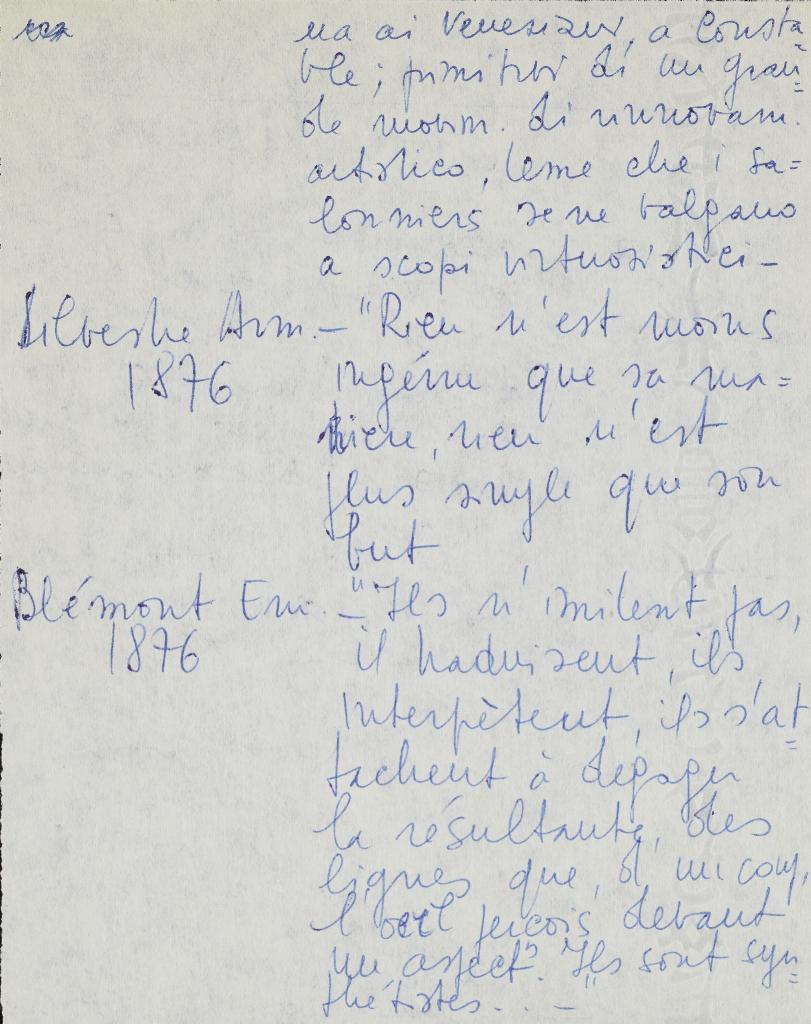 na ai Veneziani, a Consta=
ble; primitivi di un gran=
de movim. di rinnovam.
artistico, teme che i sa=
lonniers se ne valgano
a scopi virtuosistici –
Silvestre Arm. – "Rien n'est moins
1876 ingénu que sa ma=
nière, rien n'est
plus simple que son
but
Blémont Em. – "Ils n'imitent pas,
1876 il traduisent, ils
interprètent, ils s'at=
tachent à dégager
la résultante, des
lignes que, d'un coup,
l'oeil perçois devant
un aspect". "Ils sont syn=
thétistes... –